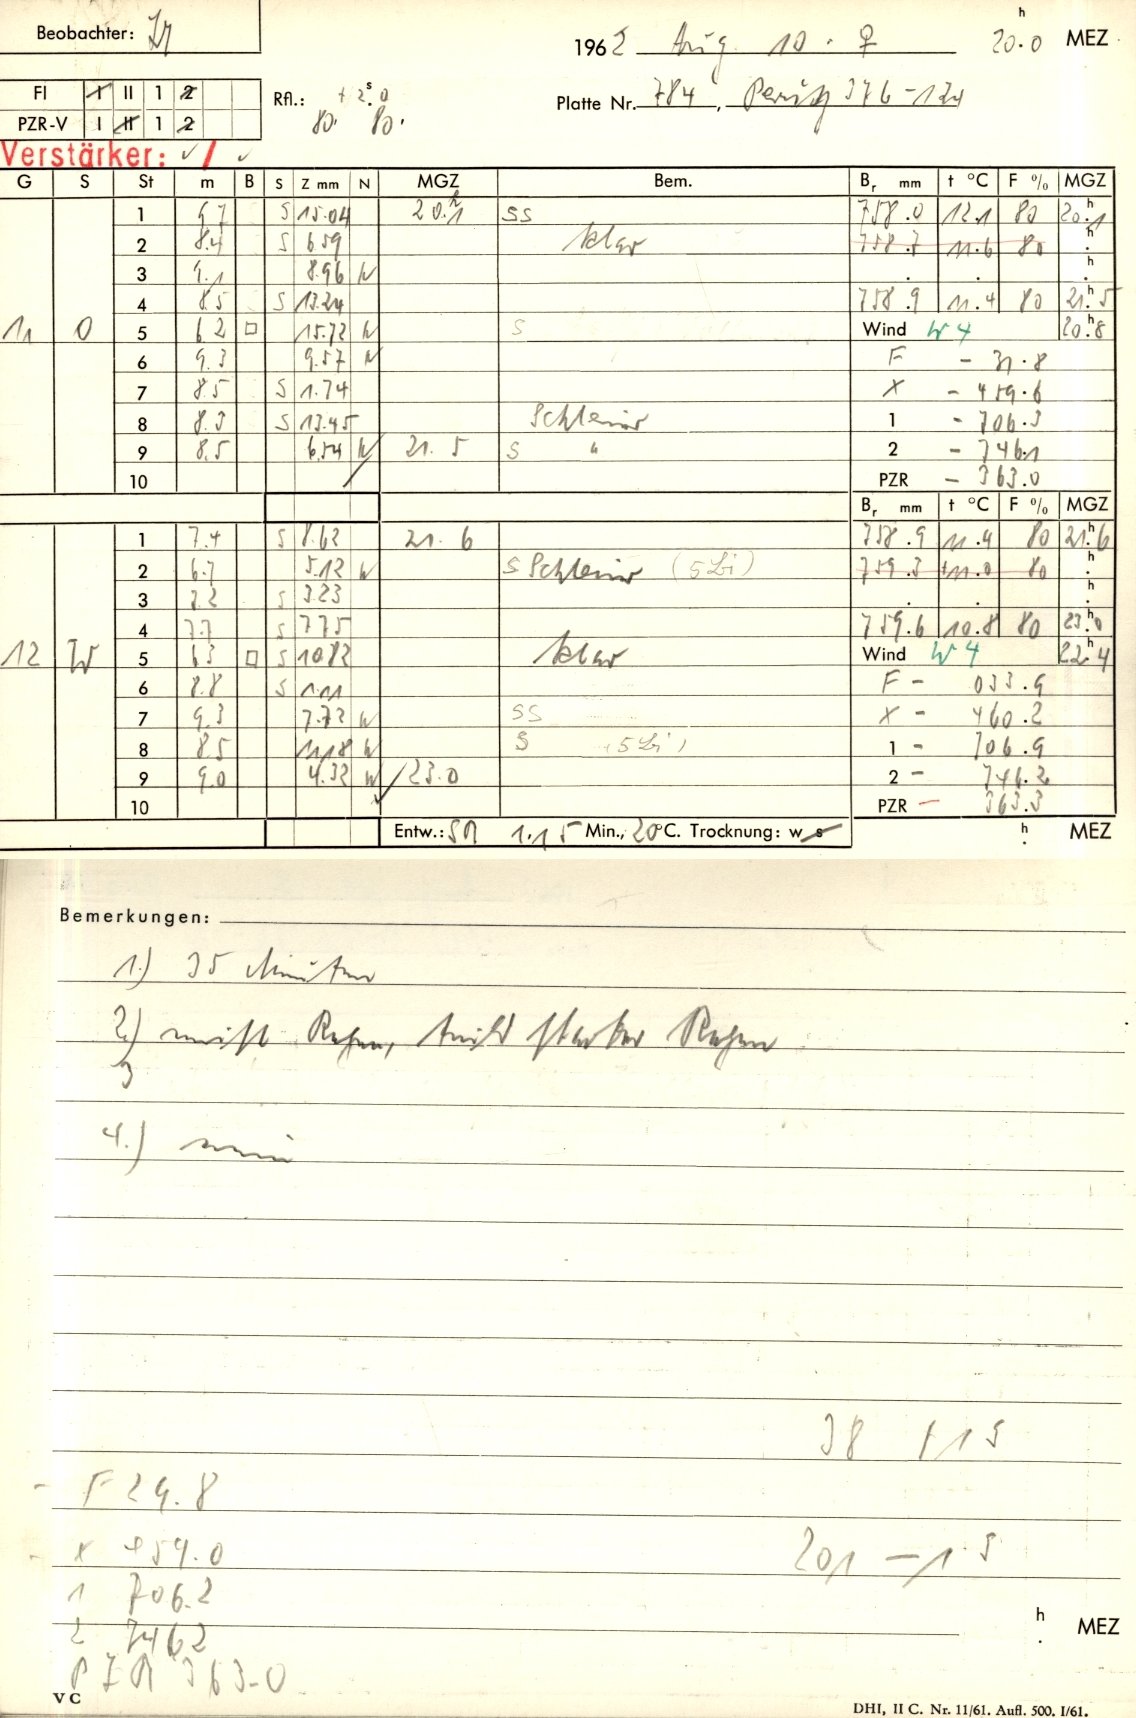 Beobachter:
1962 Aug. 10. ♀ 20.0 h MEZ
FI I II 1 2
Rfl.: + 2.0 s
80. 80.
Platte Nr. 784, 376-
PZR-V I II 1 2
Verstärker:
G S St m B S Z mm N MGZ Bem. Br mm t °C F % MGZ
1 9.7 S 15.04 20.1 h SS 758.0 12.1 80 20.1 h
2 8.4 S 6.59 klar 758.7 11.6 80 . h
3 9.1 8.96 N . . . h
4 8.5 S 13.24 758.9 11.4 80 21.5 h
11 O 5 6.2 □ 15.72 N S Wind W 4 20.8 h
6 9.3 9.57 N F - 31.8
7 8.5 S 1.74 X - 459.6
8 8.3 S 13.45 Schleier 1 - 706.3
9 8.5 6.54 N 21.5 S " 2 - 746.1
10 PZR - 363.0
Br mm t °C F % MGZ
1 7.4 S 8.62 21.6 758.9 11.4 80 21.6 h
2 6.7 5.12 N S Schleier (5 Bi) 759.3 +11.0 80 . h
3 7.2 S 3.23 . . . h
4 7.7 S 7.75 759.6 10.8 80 23.0 h
12 W 5 6.3 □ S 10.82 klar Wind W 4 22.4 h
6 8.8 S 1.11 F - 033.9
7 9.3 7.72 N SS X - 460.2
8 8.5 11.18 N S (5 Bi) 1 - 706.9
9 9.0 4.32 N 23.0 2 - 746.2
10 PZR - 363.3
Entw.: SR 1.15 Min., 20°C. Trocknung: w s h . MEZ
Bemerkungen:
1.) 35 Minuten
2.) meist Regen, teils starker Regen
3
4.)
38 + 15
- F 29.8
- X 459.0
201 - 15
1 706.2
2 746.2
h . MEZ
PZR 363.0
V C
DHI, II C. Nr. 11/61. Aufl. 500. I/61.